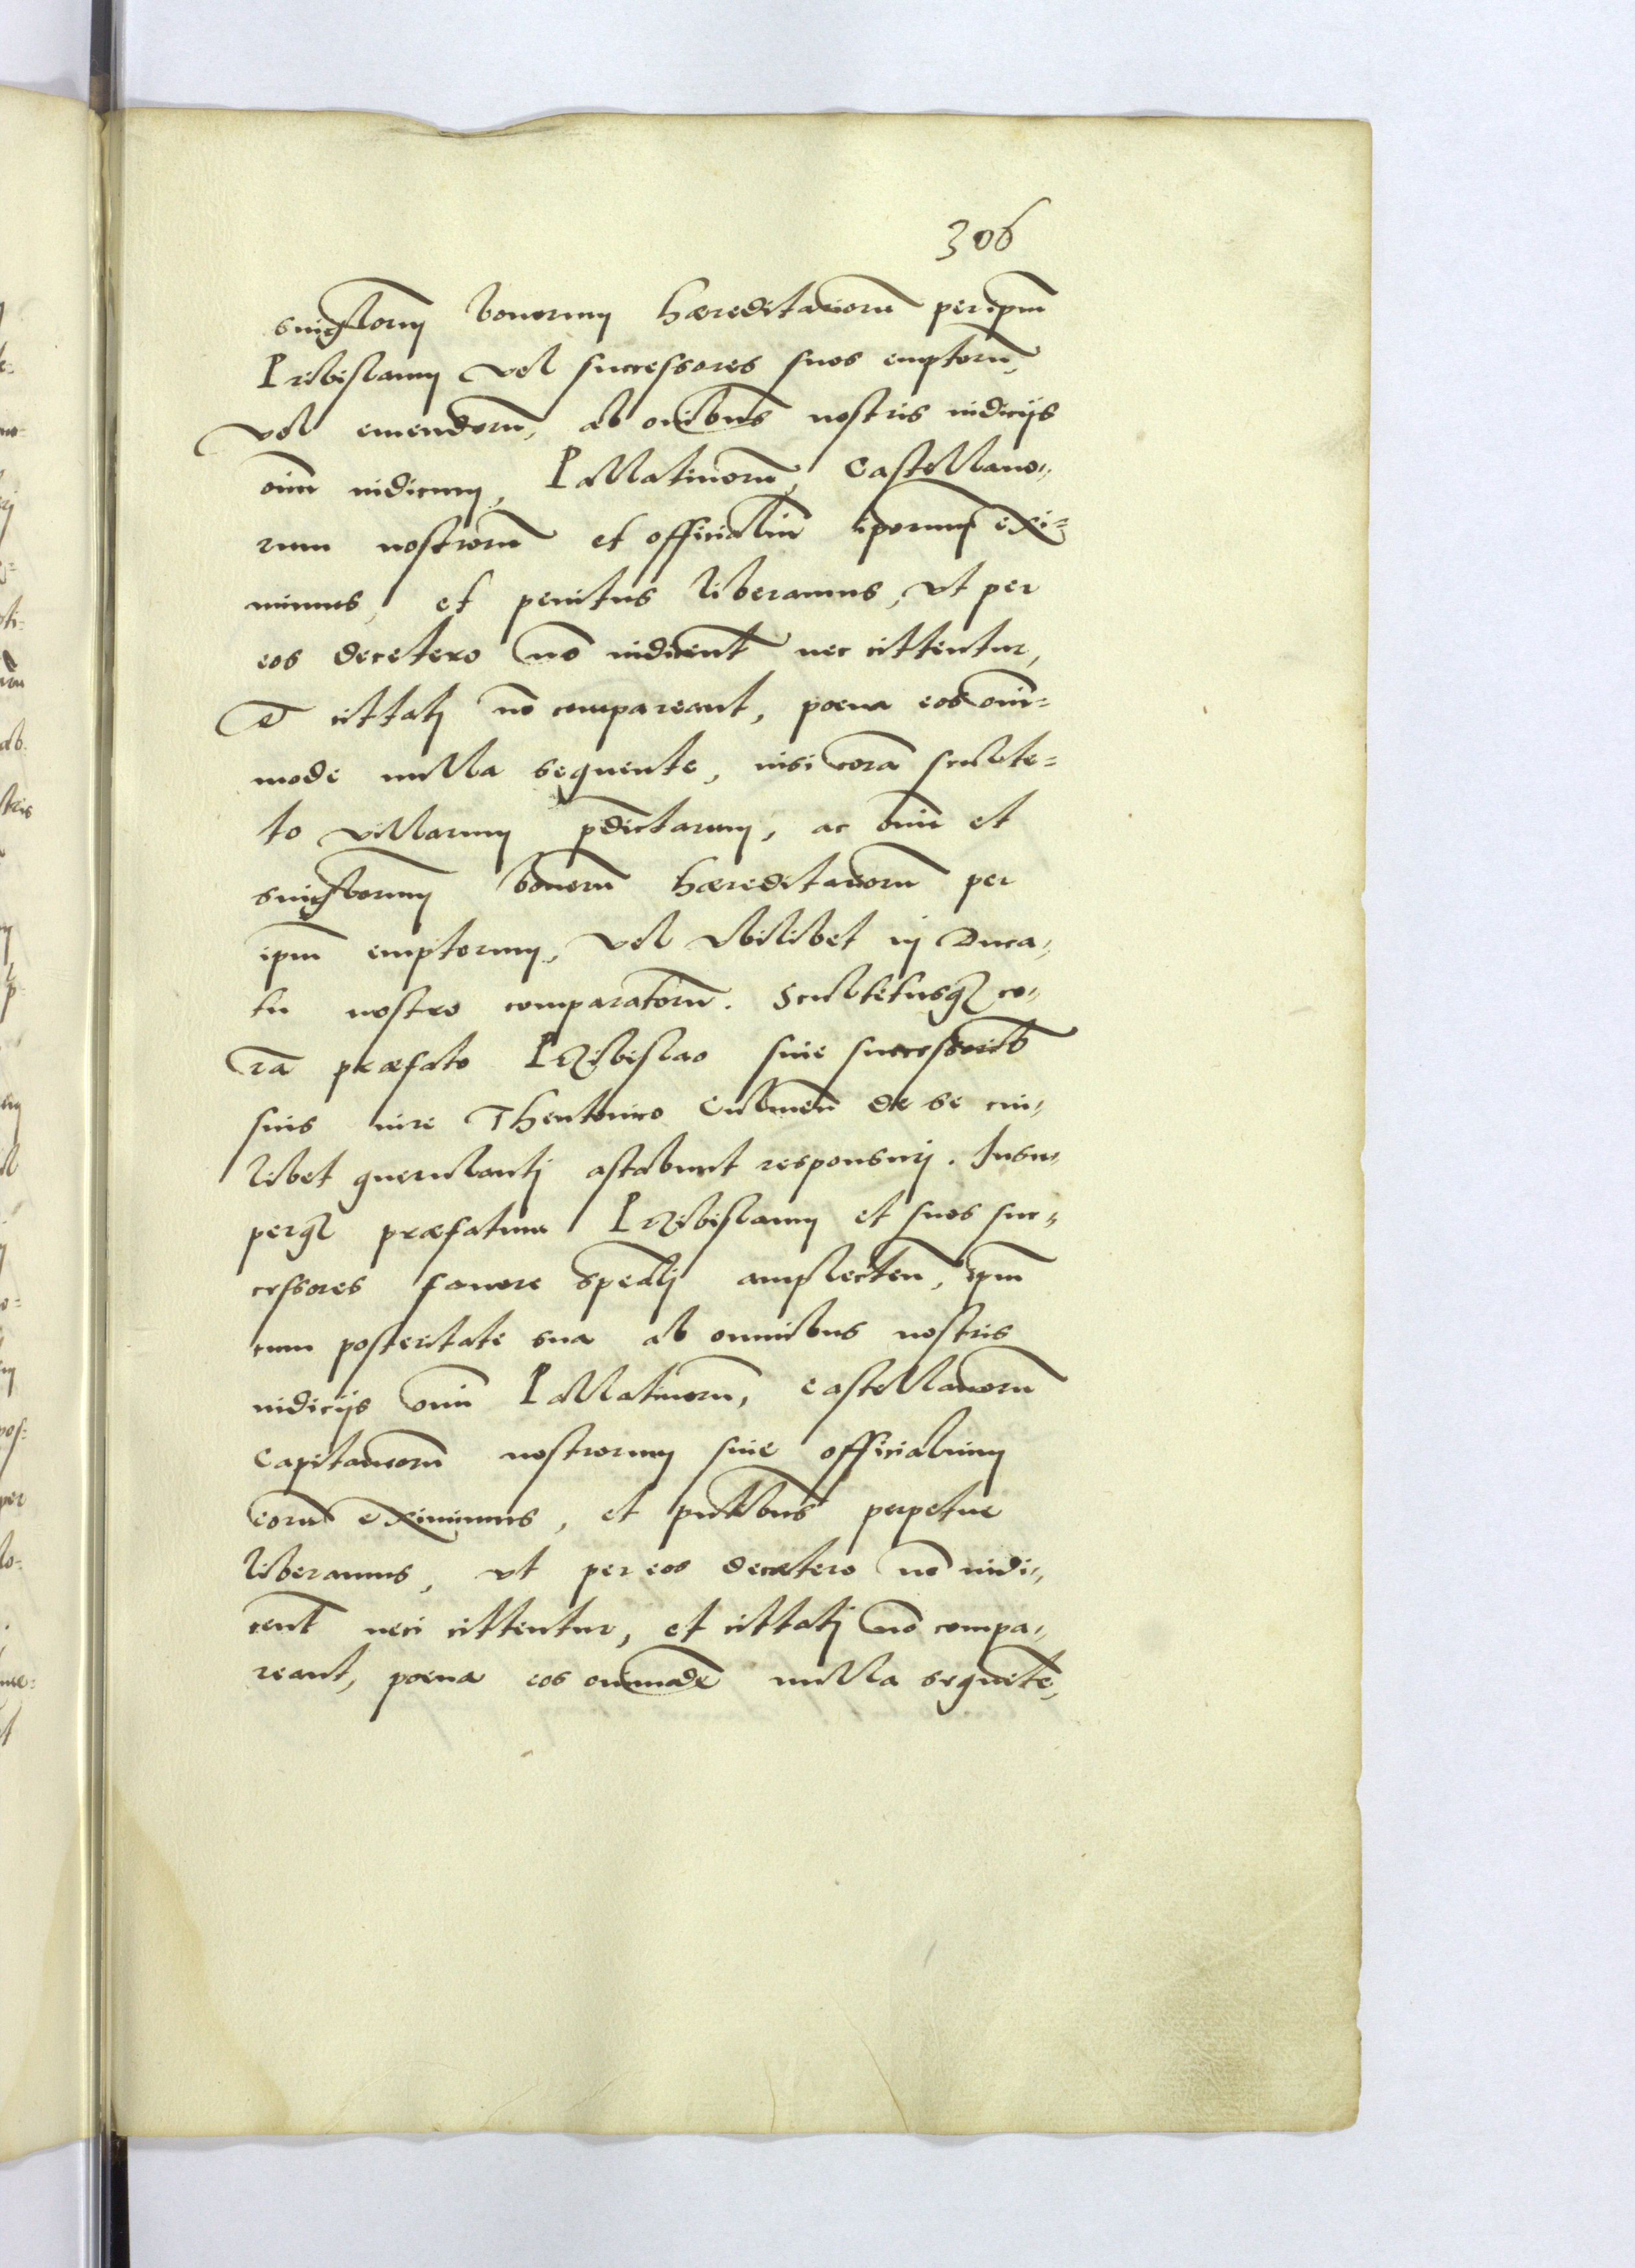 306
singlorum bonorum hæreditariorum per ipm̄
Pribislaum vel successores suos emptorū,
vel emendorū, ab oīibus nostris iudicijs
oīm iudicum, Pallatinorū, Castellano„
rum nostrorū et officialiū ipsorum exi=
mimus, et penitus liberamus, vt per
eos decetero nō iudicent̄ nec cittentur,
et cittati nō compareant, poena eos oīm=
mode nulla sequente, nisi corā sculte=
to villarum p̄dictarum, ac oīm et
singlorum bonorū hæreditariorū per
ipm̄ emptorum, vel vbilibet in Duca„
tu nostro comparatorū. Scultetusq₃ co„
rā præfato Przibislao siue successorib
suis iure Theutonico Culmen̄ de se cui„
libet querulanti astabunt responsuri. Insu„
perq₃ præfatum Przibislaum et suos suc„
cessores fauore speāli amplecten̄, ipm̄
cum posteritate sua ab omnibus nostris
iudicijs oīm Pallatinorū, castellanorū
Capitaneorū nostrorum siue officialium
eorū eximimus, et p̄ntibus perpetue
liberamus, vt per eos decetero nō iudi„
cent̄ neci cittentur, et cittati nō compa„
reant, poena eos oīmmode nulla sequēte,